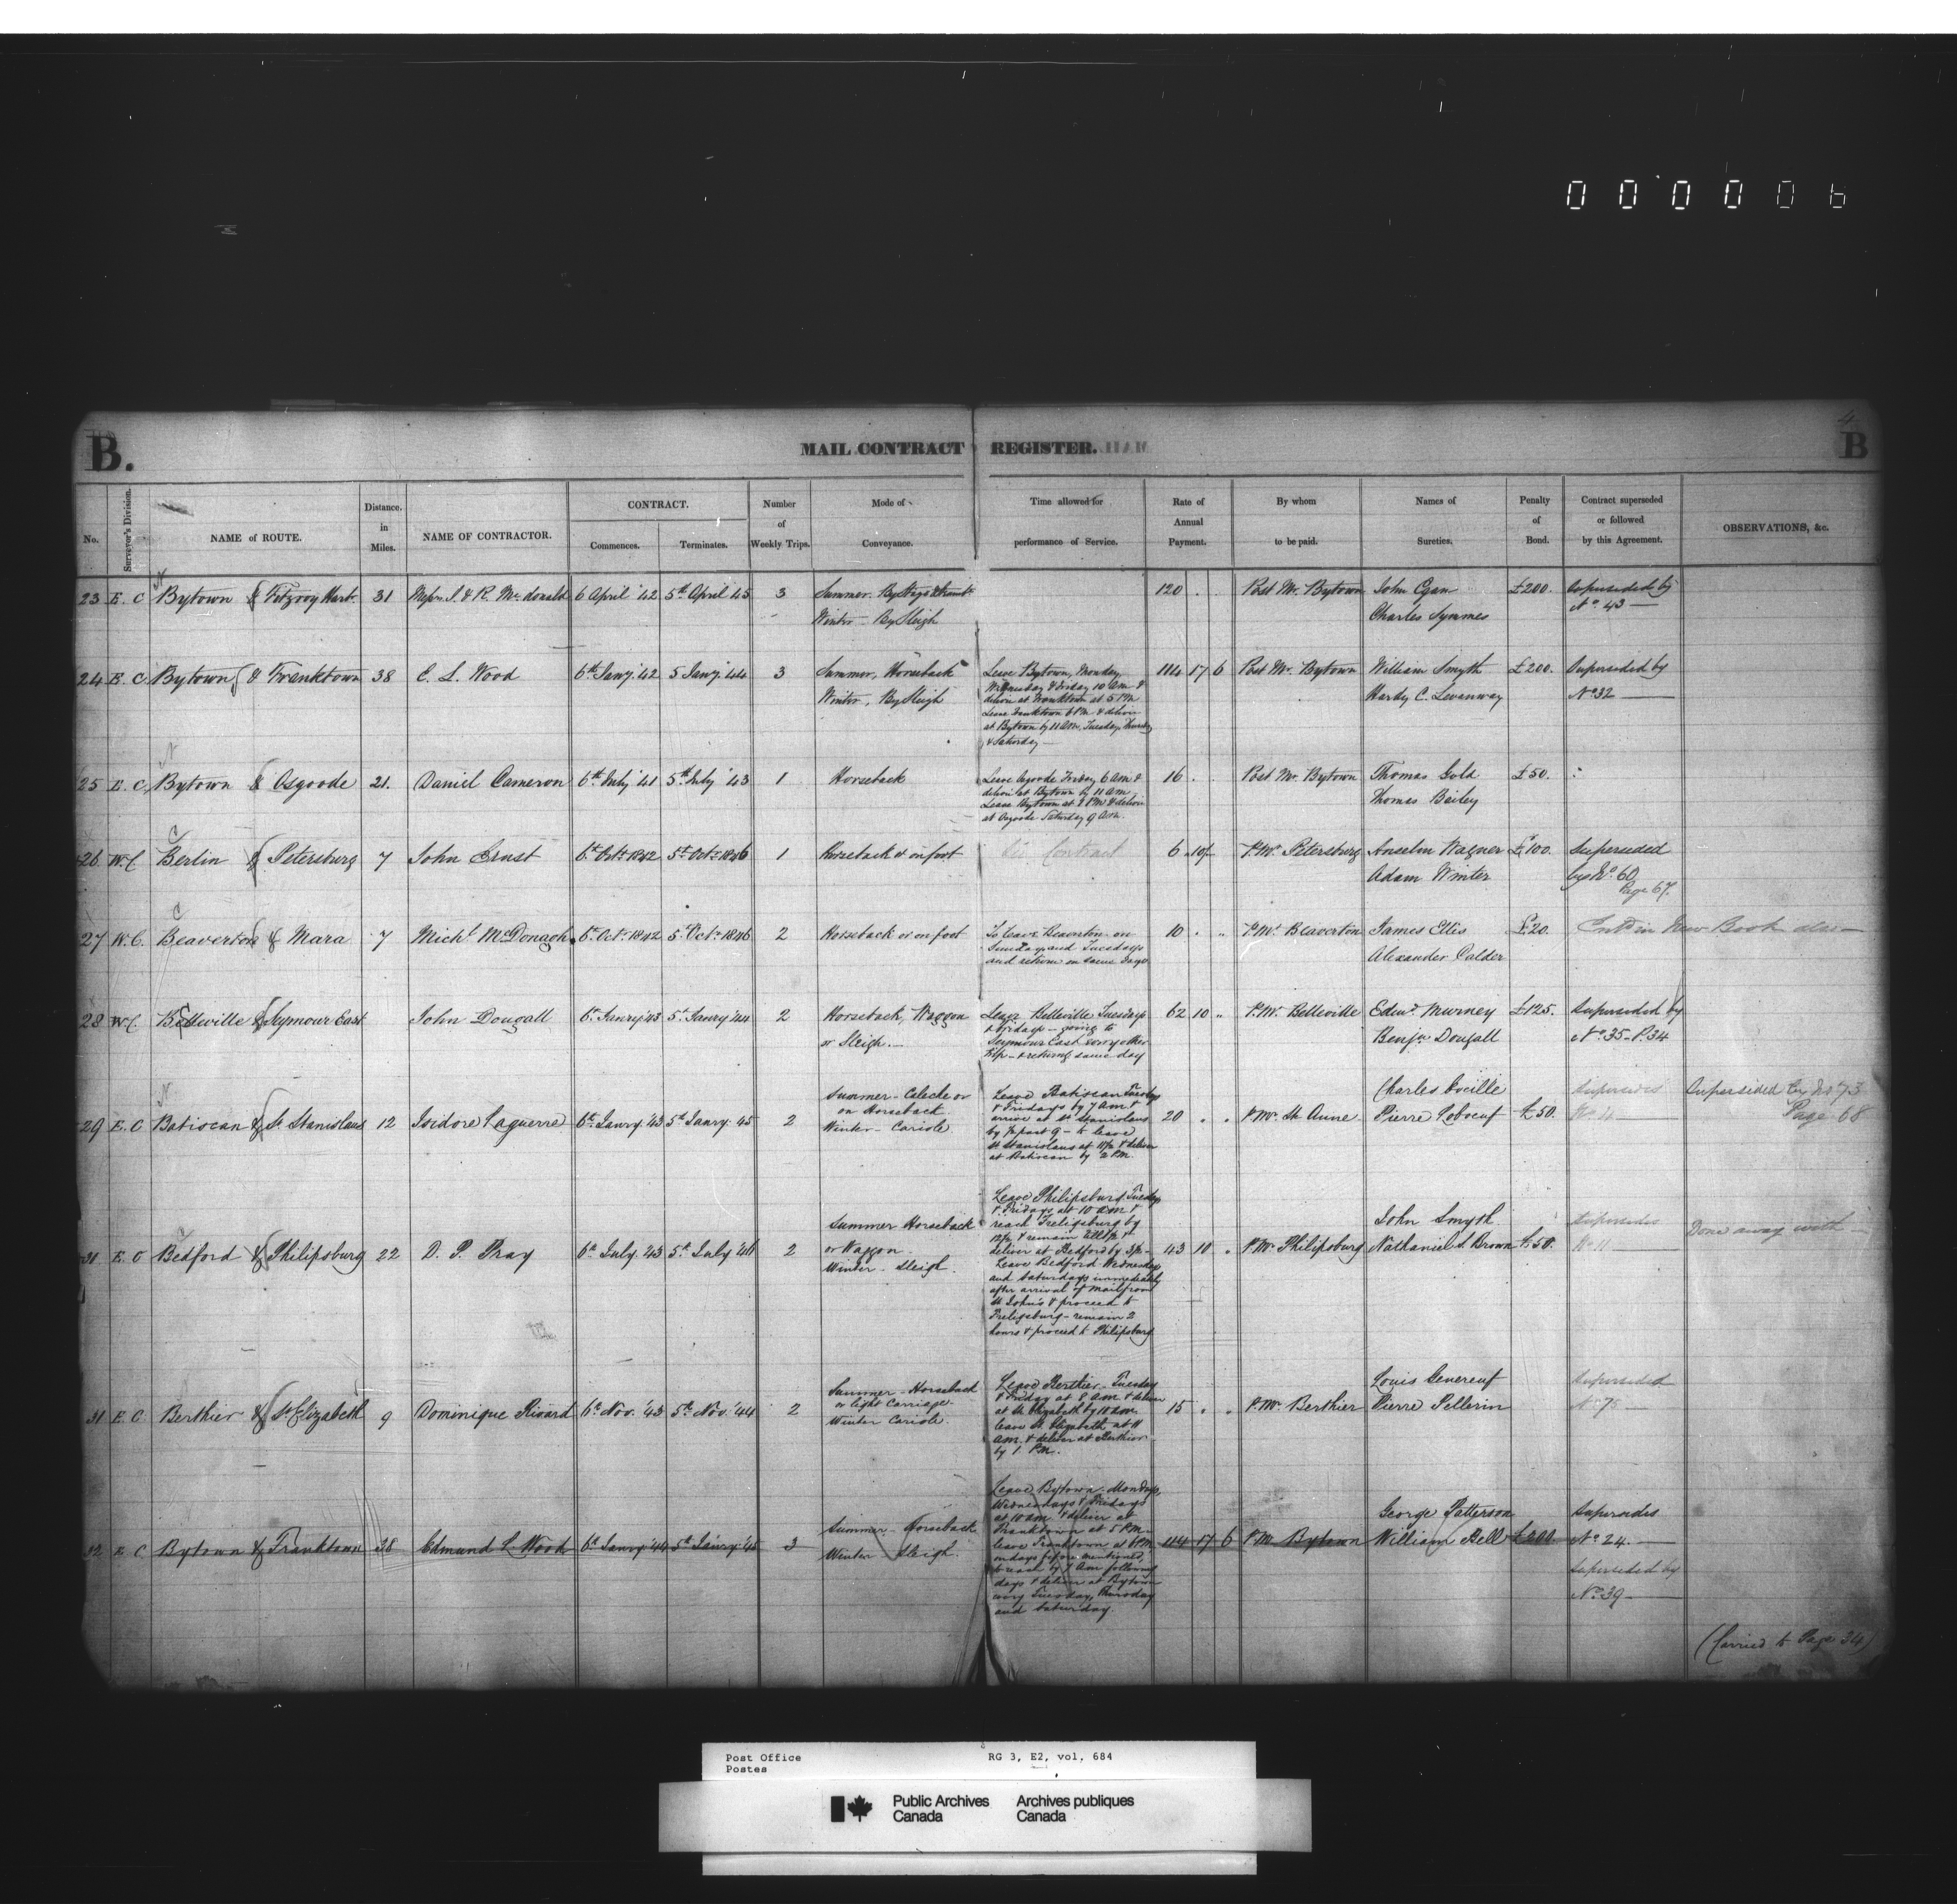 000006
4
B.
MAIL CONTRACT REGISTER.
B
No.
Surveyor's Division.
NAME of ROUTE.
Distance. in Miles.
NAME OF CONTRACTOR.
CONTRACT.
Commences.
Terminates.
Number of Weekly Trips.
Mode of Conveyance.
Time allowed for performance of Service.
Rate of Annual Payment.
By whom to be paid.
Names of Sureties.
Penalty of Bond.
Contract superseded or followed by this Agreement.
OBSERVATIONS, &c.
23 E. C Bytown & Fitzroy Harb. 31 Messrs. J. & R. McDonald 6 April '42 5th April 45 3 Summer. By Stage & Steamb. 120 . Post Mr. Bytown John Egan £200. Superseded by
Winter - By Sleigh Charles Symmes No. 43
24 E. C Bytown & Franktown 38 C. L. Wood 6th Jany. '42 5 Jany. '44 3 Summer, Horseback 114 17 6 Post Mr. Bytown William Smyth £200. Superseded by
Winter, By Sleigh Hardy C. Levanway No 32
Leave Bytown, Monday,
Wednesday & Friday 10 AM &
deliver at Franktown at 5 PM
Leave Franktown 6 PM & deliver
at Bytown by 11 AM. Tuesday, Thursday
& Saturday
25 E. C. Bytown & Osgoode 21. Daniel Cameron 6th July '41 5th July '43 1 Horseback 16 . Post Mr. Bytown Thomas Gold £50.
Thomas Bailey
Leave Osgoode Friday 6 AM &
deliver at Bytown by 11 AM
Leave Bytown at 2 PM & deliver
at Osgoode Saturday 9 AM.
26 W. C. Berlin & Petersburg 7 John Ernst 6th Octr. 1842 5th Octr. 1846 1 Horseback or on foot Contract 6 10/ P. Mr. Petersburg Anselm Wagner £100. Superseded
Adam Winter by No. 60
Page 67.
27 W. C. Beaverton & Mara 7 Michl. McDonagh 6th Oct. 1842 5th Octr. 1846 2 Horseback or on foot 10 . " P. Mr. Beaverton James Ellis £20. Entd. in New Book also
Alexander Calder
To leave Beaverton on
Sunday and Tuesdays
and return on same days
28 W. C. Belleville & Seymour East John Dougall 6th Janry '43 5th Janry '44 2 Horseback, Waggon 62 10 " P. Mr. Belleville Edmd. Murney £125. Superseded by
or Sleigh. Benjn. Dougall No. 35 - P. 34
Leave Belleville Tuesdays
& Fridays - going to
Seymour East every other
trip - & returning same day
29 E. C Batiscan & St. Stanislaus 12 Isidore Laguerre 6th Janry. '43 5th Janry. 45 2 20 . . P. Mr. St. Anne Pierre Leboeuf £50.
Summer - Caleche or
on Horseback
Winter - Cariole
Leave Batiscan Tuesdays
& Fridays by 7 AM &
arrive at St. Stanislaus
by ½ past 9 - to leave
St Stanislaus at 11½ & deliver
at Batiscan by 2 PM.
Supersedes
Superseded by No. 73
Page 68
31 E. C Bedford & Philipsburg 22 D. P. Pray 6th July. '43 5th July '46 2 43 10 . P. Mr. Philipsburg Nathaniel S. Brown £50.
Summer Horseback
or Waggon.
Winter - Sleigh.
John Smyth
Leave Philipsburg Tuesdays
& Fridays at 10 am &
reach Freligsburg by
deliver at Bedford by
Leave Bedford Wednesdays
and Saturdays immediately
after arrival of mail from
St. John's & proceed to
Freligsburg - remain 2
hours & proceed to Philipsburg
Supersedes
No. 11
Done away with
31 E. C Berthier & St. Elizabeth 9 Dominique Rivard 6th Nov. '43 5th Nov. '44 2 15 . . P. Mr. Berthier Pierre Pellerin
Summer - Horseback
or light Carriage.
Winter Cariole.
Leave Berthier - Tuesday
& Friday at 8 AM & deliver
at St. Elizabeth by 10 am.
leave St. Elizabeth at 11
am. & deliver at Berthier
by 1. PM.
Louis
Superseded
32 E C Bytown & Franktown 38 Edmund L Wood 6th Janry '44 5th Janry '45 3 114 17 6 P. M. Bytown William Bell £200.
Summer - Horseback
Winter Sleigh.
Leave Bytown - Mondays,
Wednesdays & Fridays
at 10 am & deliver at
Franktown at 5 PM
leave Franktown at 6 PM
on days before mentioned,
days & deliver at Bytown
every Tuesday, Thursday
and Saturday.
George Patterson
Supersedes
No. 24.
Superseded by
No. 39
(Carried to Page 34)
Post Office
Postes
RG 3, E2, vol. 684
Public Archives Canada
Archives publiques Canada